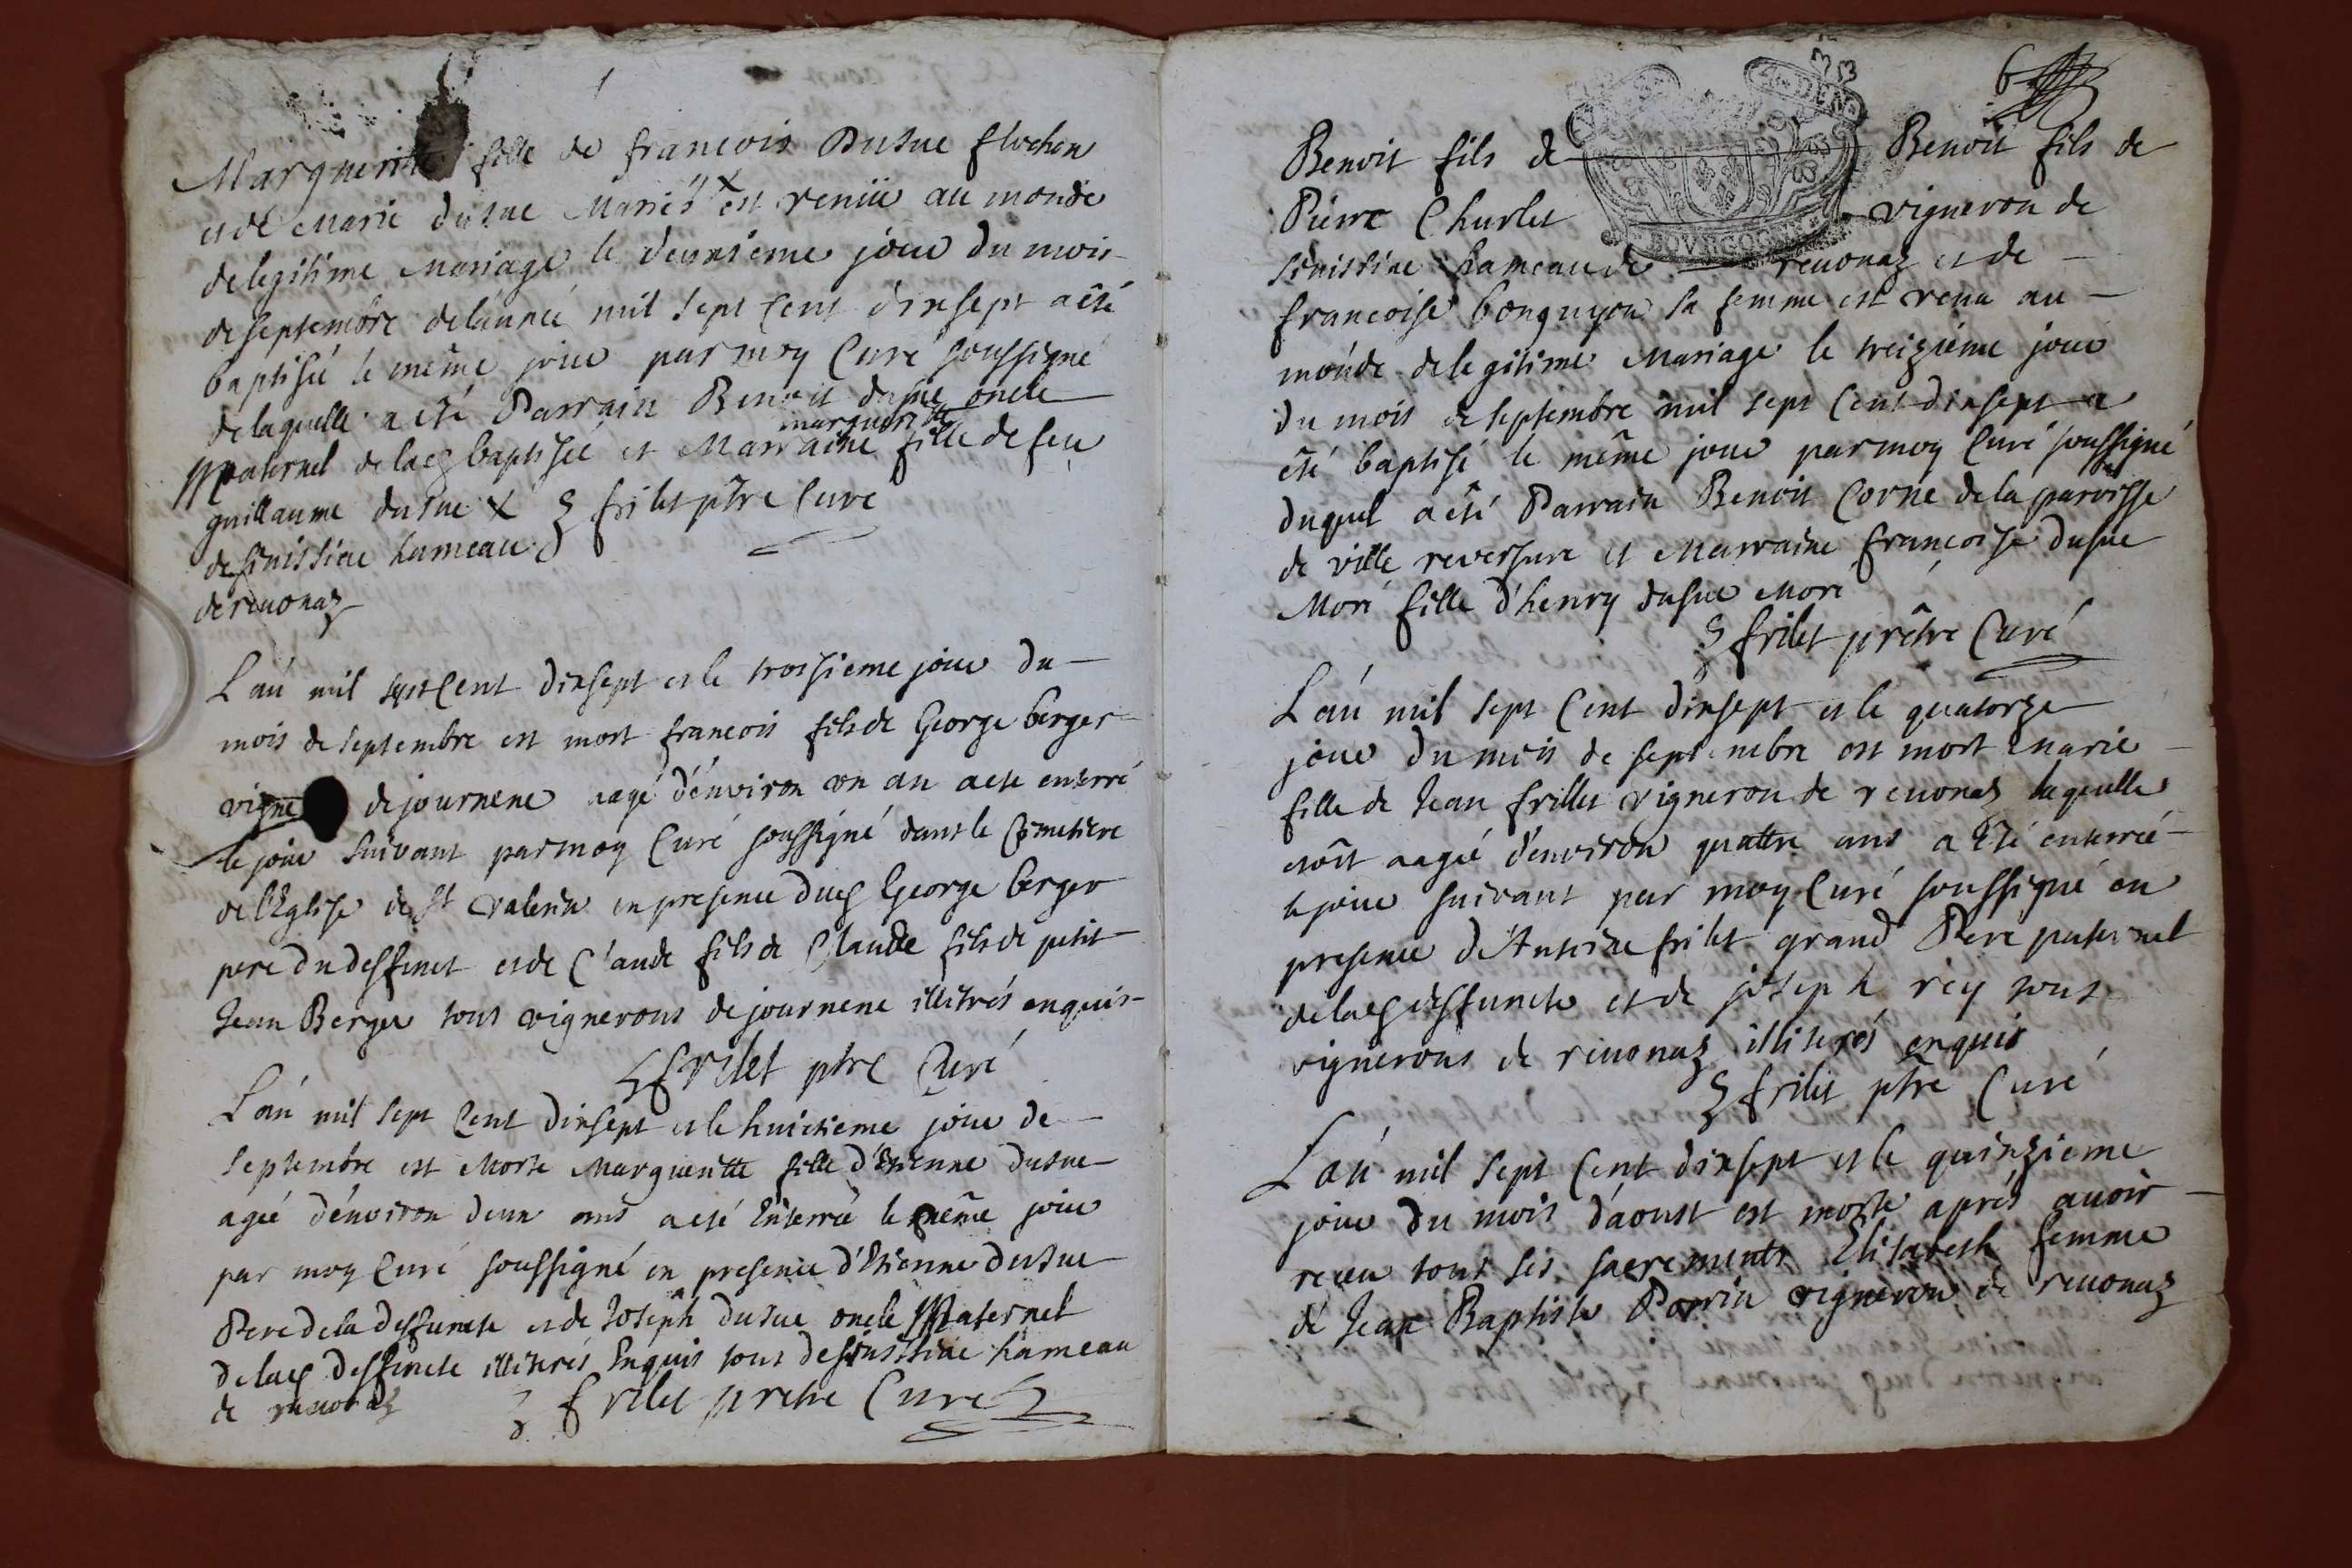 Margueritte fille de francois Dusue flochon
et de Marie dusue Mariés X est venüe au monde
de legitime Mariage le deuxsieme jour du mois
de septembre de l'année mil sept Cent dixsept a été
baptisée le même jour par moy Curé soussigné
de laquelle a été Parrain Benoit dusue oncle
Maternel de lad baptisée et Marraine marguerite fille de feu
guillaume dusue X frilet ptre Curé
de sinissiae hameau
de reuonaz
L'an mil sept Cent dixsept et le troisieme jour du
mois de septembre est mort francois fils de George berger
vigne de journene aagé d'environ un an a esté enterré
le jour suivant par moy Curé soussigné dans le Cimetiere
de l'Eglise de St Valerin en presence dud George berger
pere du deffunct et de Claude fils de Claude fils de petit
Jean Berger tous vignerons de journene illitrés enquis
frilet ptre Curé
L'an mil sept Cent dixsept et le huictieme jour de
septembre est Morte Margueritte fille d'Etienne dusue
agée d'environ deux ans a eté Enterrée le même jour
par moy Curé soussigné en presence d'Etienne dusue
Pere de la deffuncte et de Joseph dusue oncle Maternel
de lad deffuncte illiterés Enquis tous de sinissiae hameau
de reuonaz frilet pretre Curé
6
Benoit fils de Benoit fils de
Pierre Churlet vigneron de
sinissiae hameau de reuonaz et de
francoise bonguyon sa femme est venu au
monde de legitime Mariage le treizieme jour
du mois de septembre mil sept Cent dixsept a
été baptisé le même jour par moy Curé soussigné
duquel a été Parrain Benoit Corne de la paroisse
de ville reversure et Marraine francoise dusue
Moré fille d'henry dusue Moré
frilet prêtre Curé
L'an mil sept Cent dixsept et le quatorze
jour du mois de septembre est mort Marie
fille de Jean frillet vigneron de reuonaz laquelle
etoit aagée d'environ quattre ans a été enterrée
le jour suivant par moy Curé soussigné en
presence d'Antoine frilet grand Pere paternel
de lad deffuncte et de joseph rey tous
vignerons de reuonaz illiterés enquis
frilet ptre Curé
L'an mil sept Cent dixsept et le quinzieme
jour du mois d'aoust est morte aprés auoir
receu tous ses sacrements Elisabeth femme
de Jean Baptiste Perrin vigneron de reuonaz